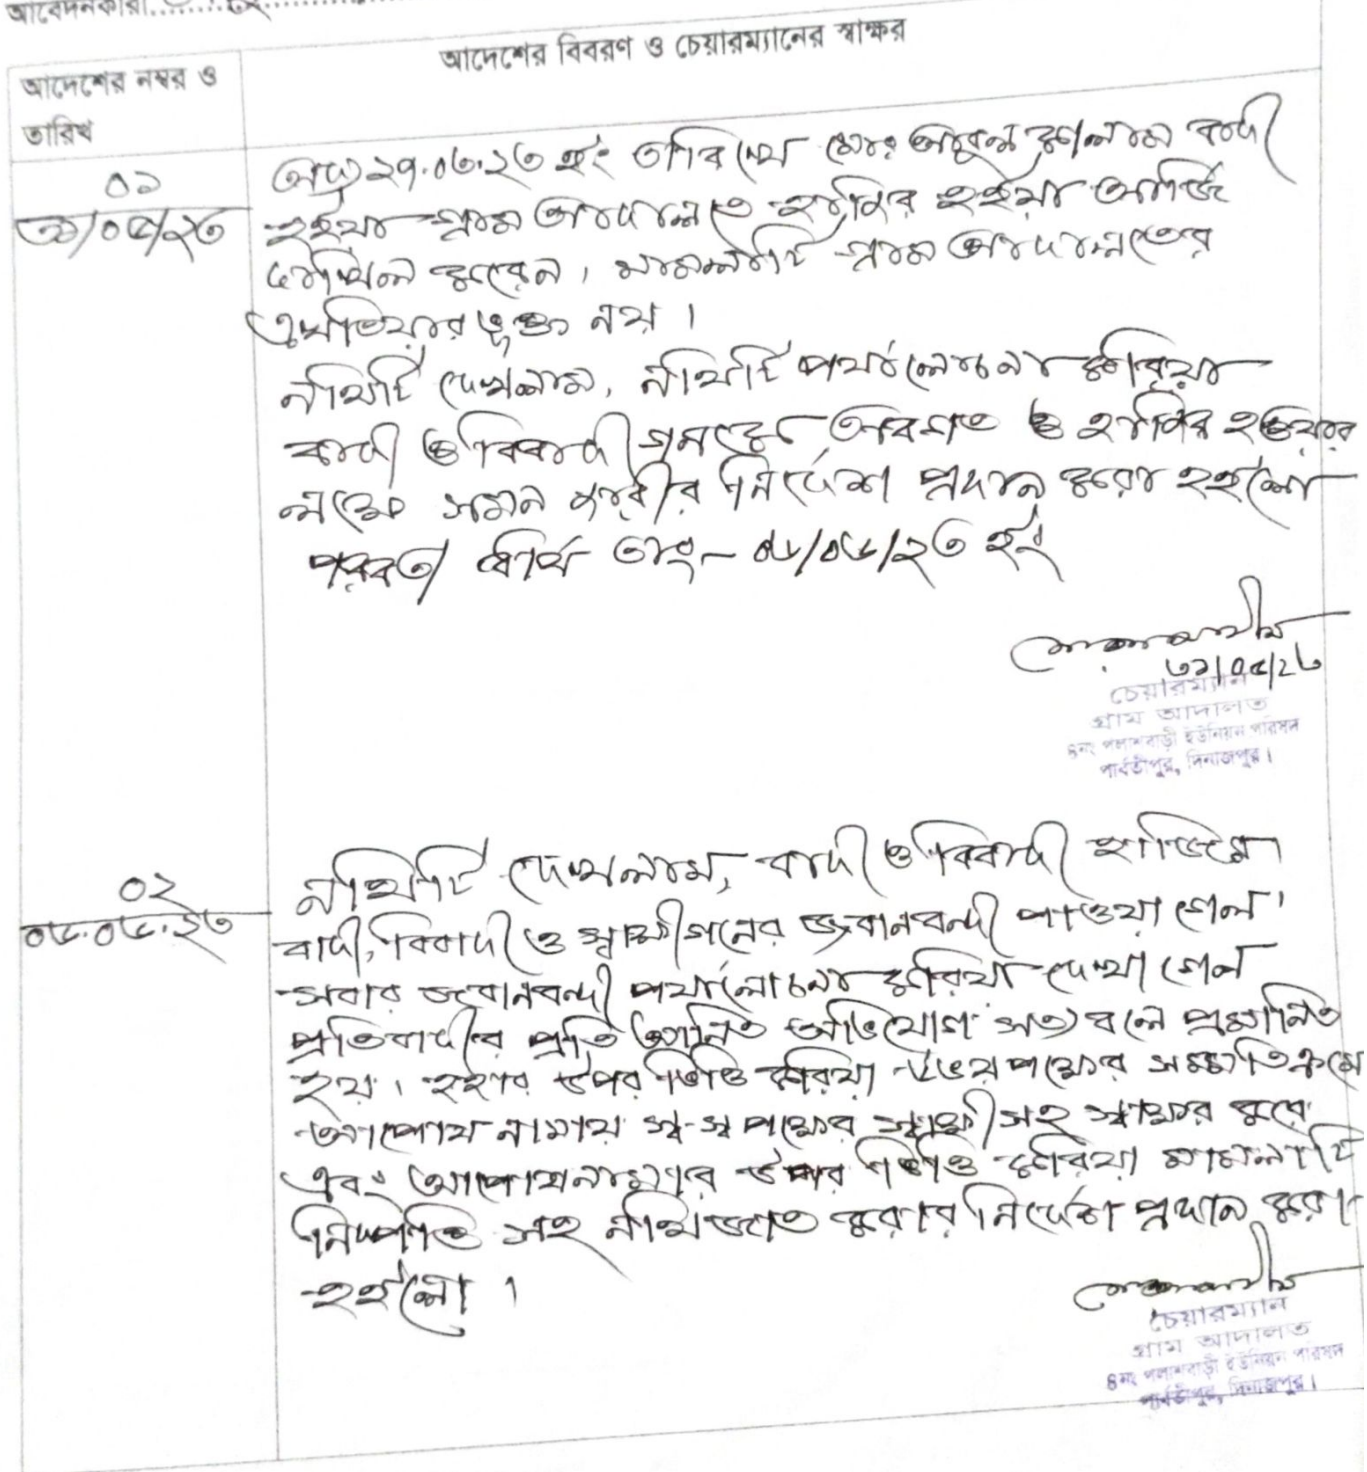 আবেদনকারী
আদেশের নম্বর ও তারিখ
আদেশের বিবরণ ও চেয়ারম্যানের স্বাক্ষর
০১
৩১/০৫/২৩
অদ্য ২৭.০৩.২৩ ইং তারিখে মোঃ আবুল কালাম বাদী
হইয়া গ্রাম আদালতে হাজির হইয়া আর্জি
দাখিল করেন। মামলাটি গ্রাম আদালতের
এখতিয়ার ভুক্ত নয়।
নথিটি দেখলাম, নথিটি পর্যালোচনা করিয়া
বাদী ও বিবাদী গনকে অবগত ও হাজির হওয়ার
লক্ষে সমন জারীর নির্দেশ প্রদান করা হইলো
পরবর্তী ধার্য তাং- ০৮/০৮/২৩ ইং
৩১/০৫/২৩
চেয়ারম্যান
গ্রাম আদালত
৪নং পলাশবাড়ী ইউনিয়ন পরিষদ
পার্বতীপুর, দিনাজপুর।
০২
০৮.০৮.২৩
নথিটি দেখলাম, বাদী ও বিবাদী হাজির।
বাদী, বিবাদী ও স্বাক্ষীগনের জবানবন্দী পাওয়া গেল।
সবার জবানবন্দী পর্যালোচনা করিয়া দেখা গেল
প্রতিবাদীর প্রতি আনিত অভিযোগ সত্য বলে প্রমানিত
হয়। ইহার উপর ভিত্তি করিয়া উভয় পক্ষের সম্মতিক্রমে
আপোষ নামায় স্ব-স্ব পক্ষের স্বাক্ষী সহ স্বাক্ষর করে
এবং আপোষনামার উপর ভিত্তি করিয়া মামলাটি
নিষ্পত্তি সহ নথিজাত করার নির্দেশ প্রদান করা
হইলো।
চেয়ারম্যান
গ্রাম আদালত
৪নং পলাশবাড়ী ইউনিয়ন পরিষদ
পার্বতীপুর, দিনাজপুর।